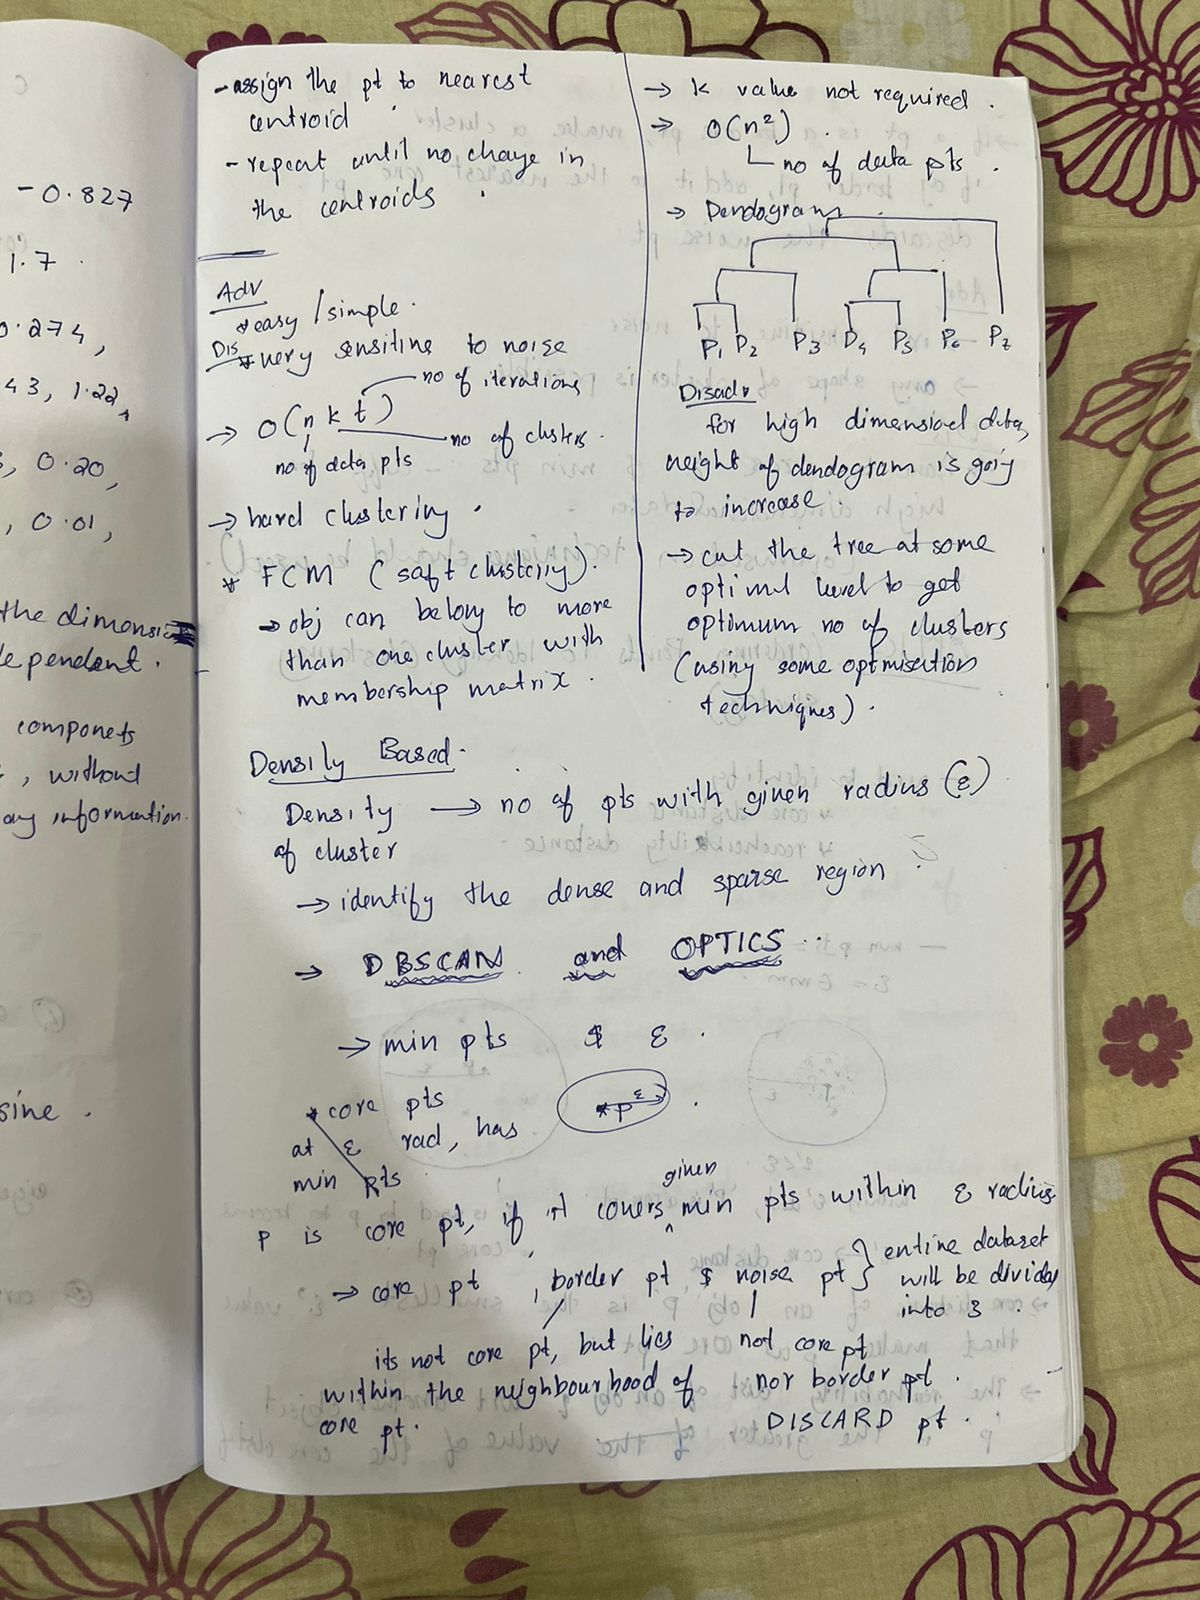 - 0.827
1.7 .
0.274,
43, 1.22,
0.20,
, 0.01,
the dimensi
dependent.
components
, without
any information.
sine .
- assign the pt to nearest
centroid
- repeat until no change in
the centroids .
Adv
* easy / simple.
Dis * very sensitive to noise
no of iterations
→ O(n k t)
no of clusters.
no of data pts
→ hard clustering .
* FCM (soft clustering).
→ obj can belong to more
than one cluster with
membership matrix .
→ k value not required .
→ O(n²) .
no of data pts .
→ Dendogram
P₁ P₂ P₃ P₄ P₅ P₆ P₇
Disadv
for high dimensional data,
height of dendogram is going
to increase .
→ cut the tree at some
optiml level to get
optimum no of clusters
(using some optmisation
techniques) .
Density Based.
Density → no of pts with given radius (ε)
of cluster
→ identify the dense and sparse region .
→ DBSCAN and OPTICS ..
→ min pts & ε .
* core pts
at ε rad, has
min pts .
*p ε .
given
p is core pt, if it covers ^ min pts within ε radius
→ core pt , border pt & noise pt } entire dataset
will be divided
into 3 .
its not core pt, but lies
within the neighbourhood of
core pt.
not core pt
nor border pt .
DISCARD pt .